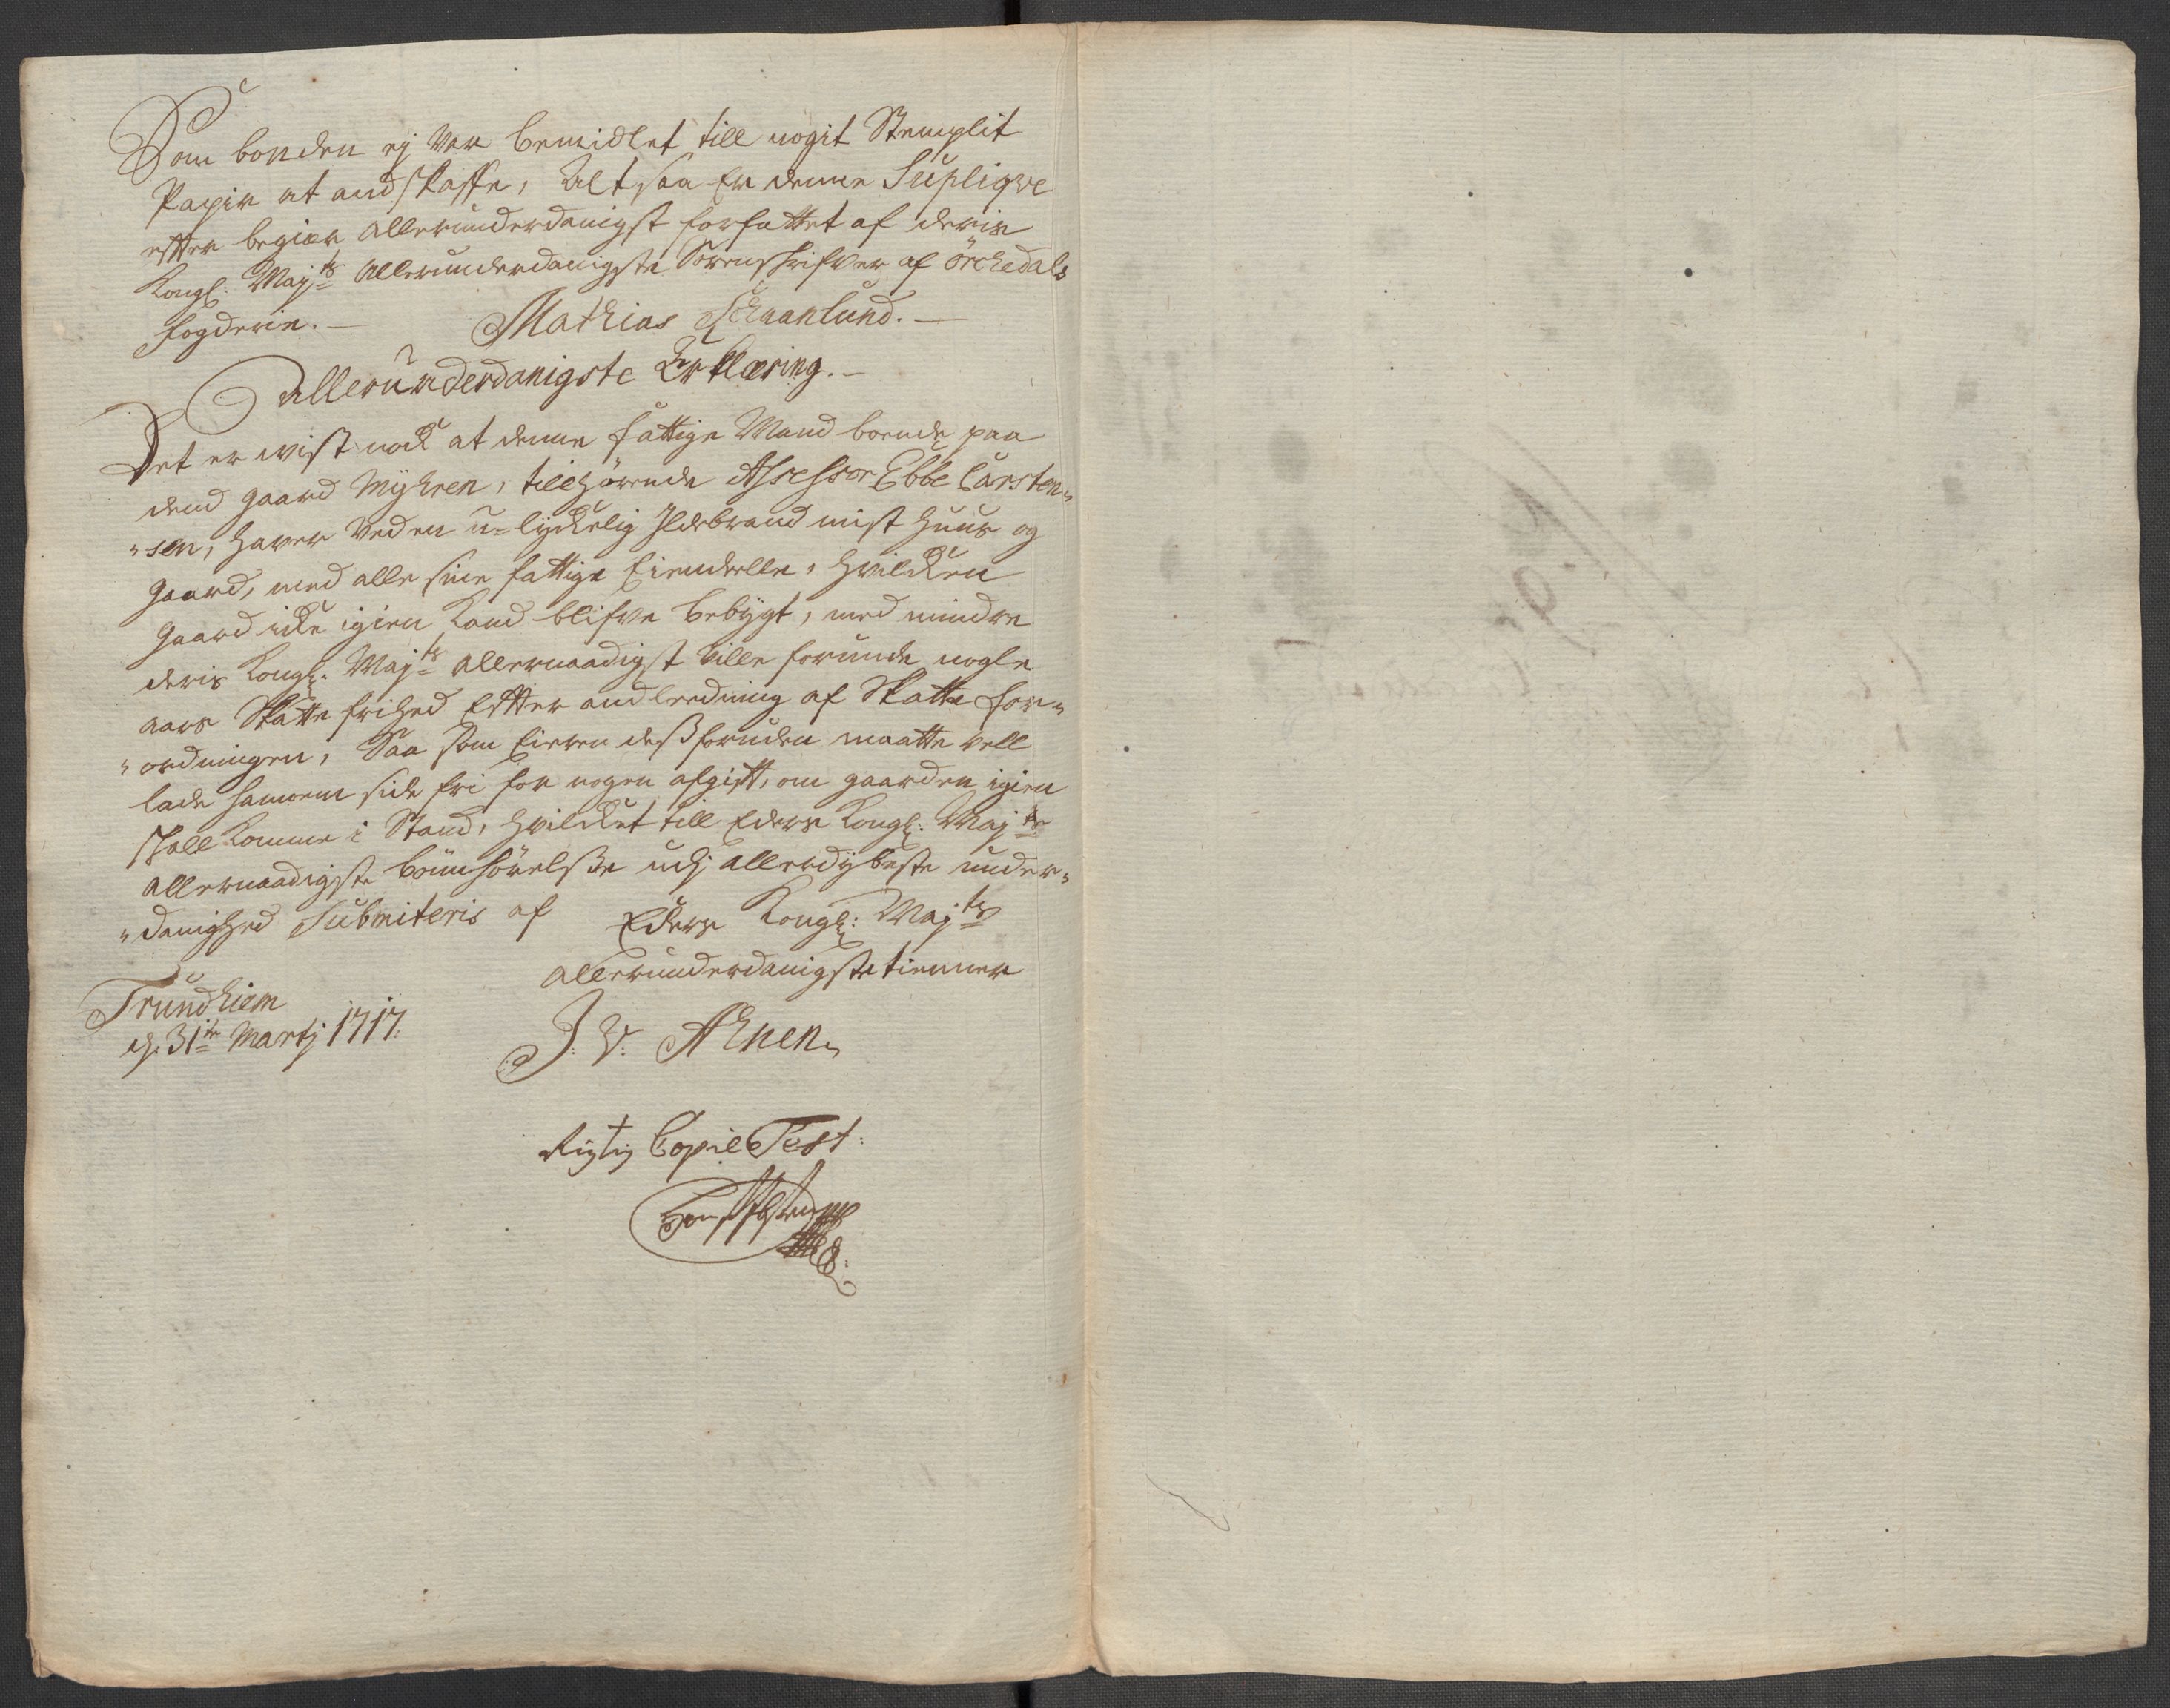 Som bonden ej var bemidlet till nogit Stemplit
Papir at andskaffe, Alt saa er denne Supliqve
efter begier allerunderdanigst forfattet af deris
Kongl: Maj:ts allerunderdanigste Sorenskrifver af Örchedals
fogderie. — Mathias Schaanlund. —
Allerunderdanigste Erklæring. —
Det er vist nock at denne fattige Mand boende paa
dend gaard Myhren, tillhörende Assessor Ebbe Carsten„
„sen, haver ved en u=lyckelig Ildebrand mist huus og
gaard, med alle sine fattige Eiendeelle, hvilcken
gaard icke igien kand blifve bebygt, med mindre
deris Kongl: Maj:ts allernaadigst ville forunde nogle
aars Skatte frihed Efter andleedning af Skatte for„
„ordningen, Saa som Eieren dessforuden maatte vell
lade hannem side fri for nogen afgift, om gaarden igien
skall komme i Stand, hvilcket till Eders Kongl: Maj:ts
allernaadigste bönnhörelsse udj allerdybeste under„
„danighed Submiteris af Eders Kongl: Maj:ts
allerunderdanigste tienner
Trundhiem
d: 31te Martj 1717: J: V: Ahnen„
Rigtig Copie Test: